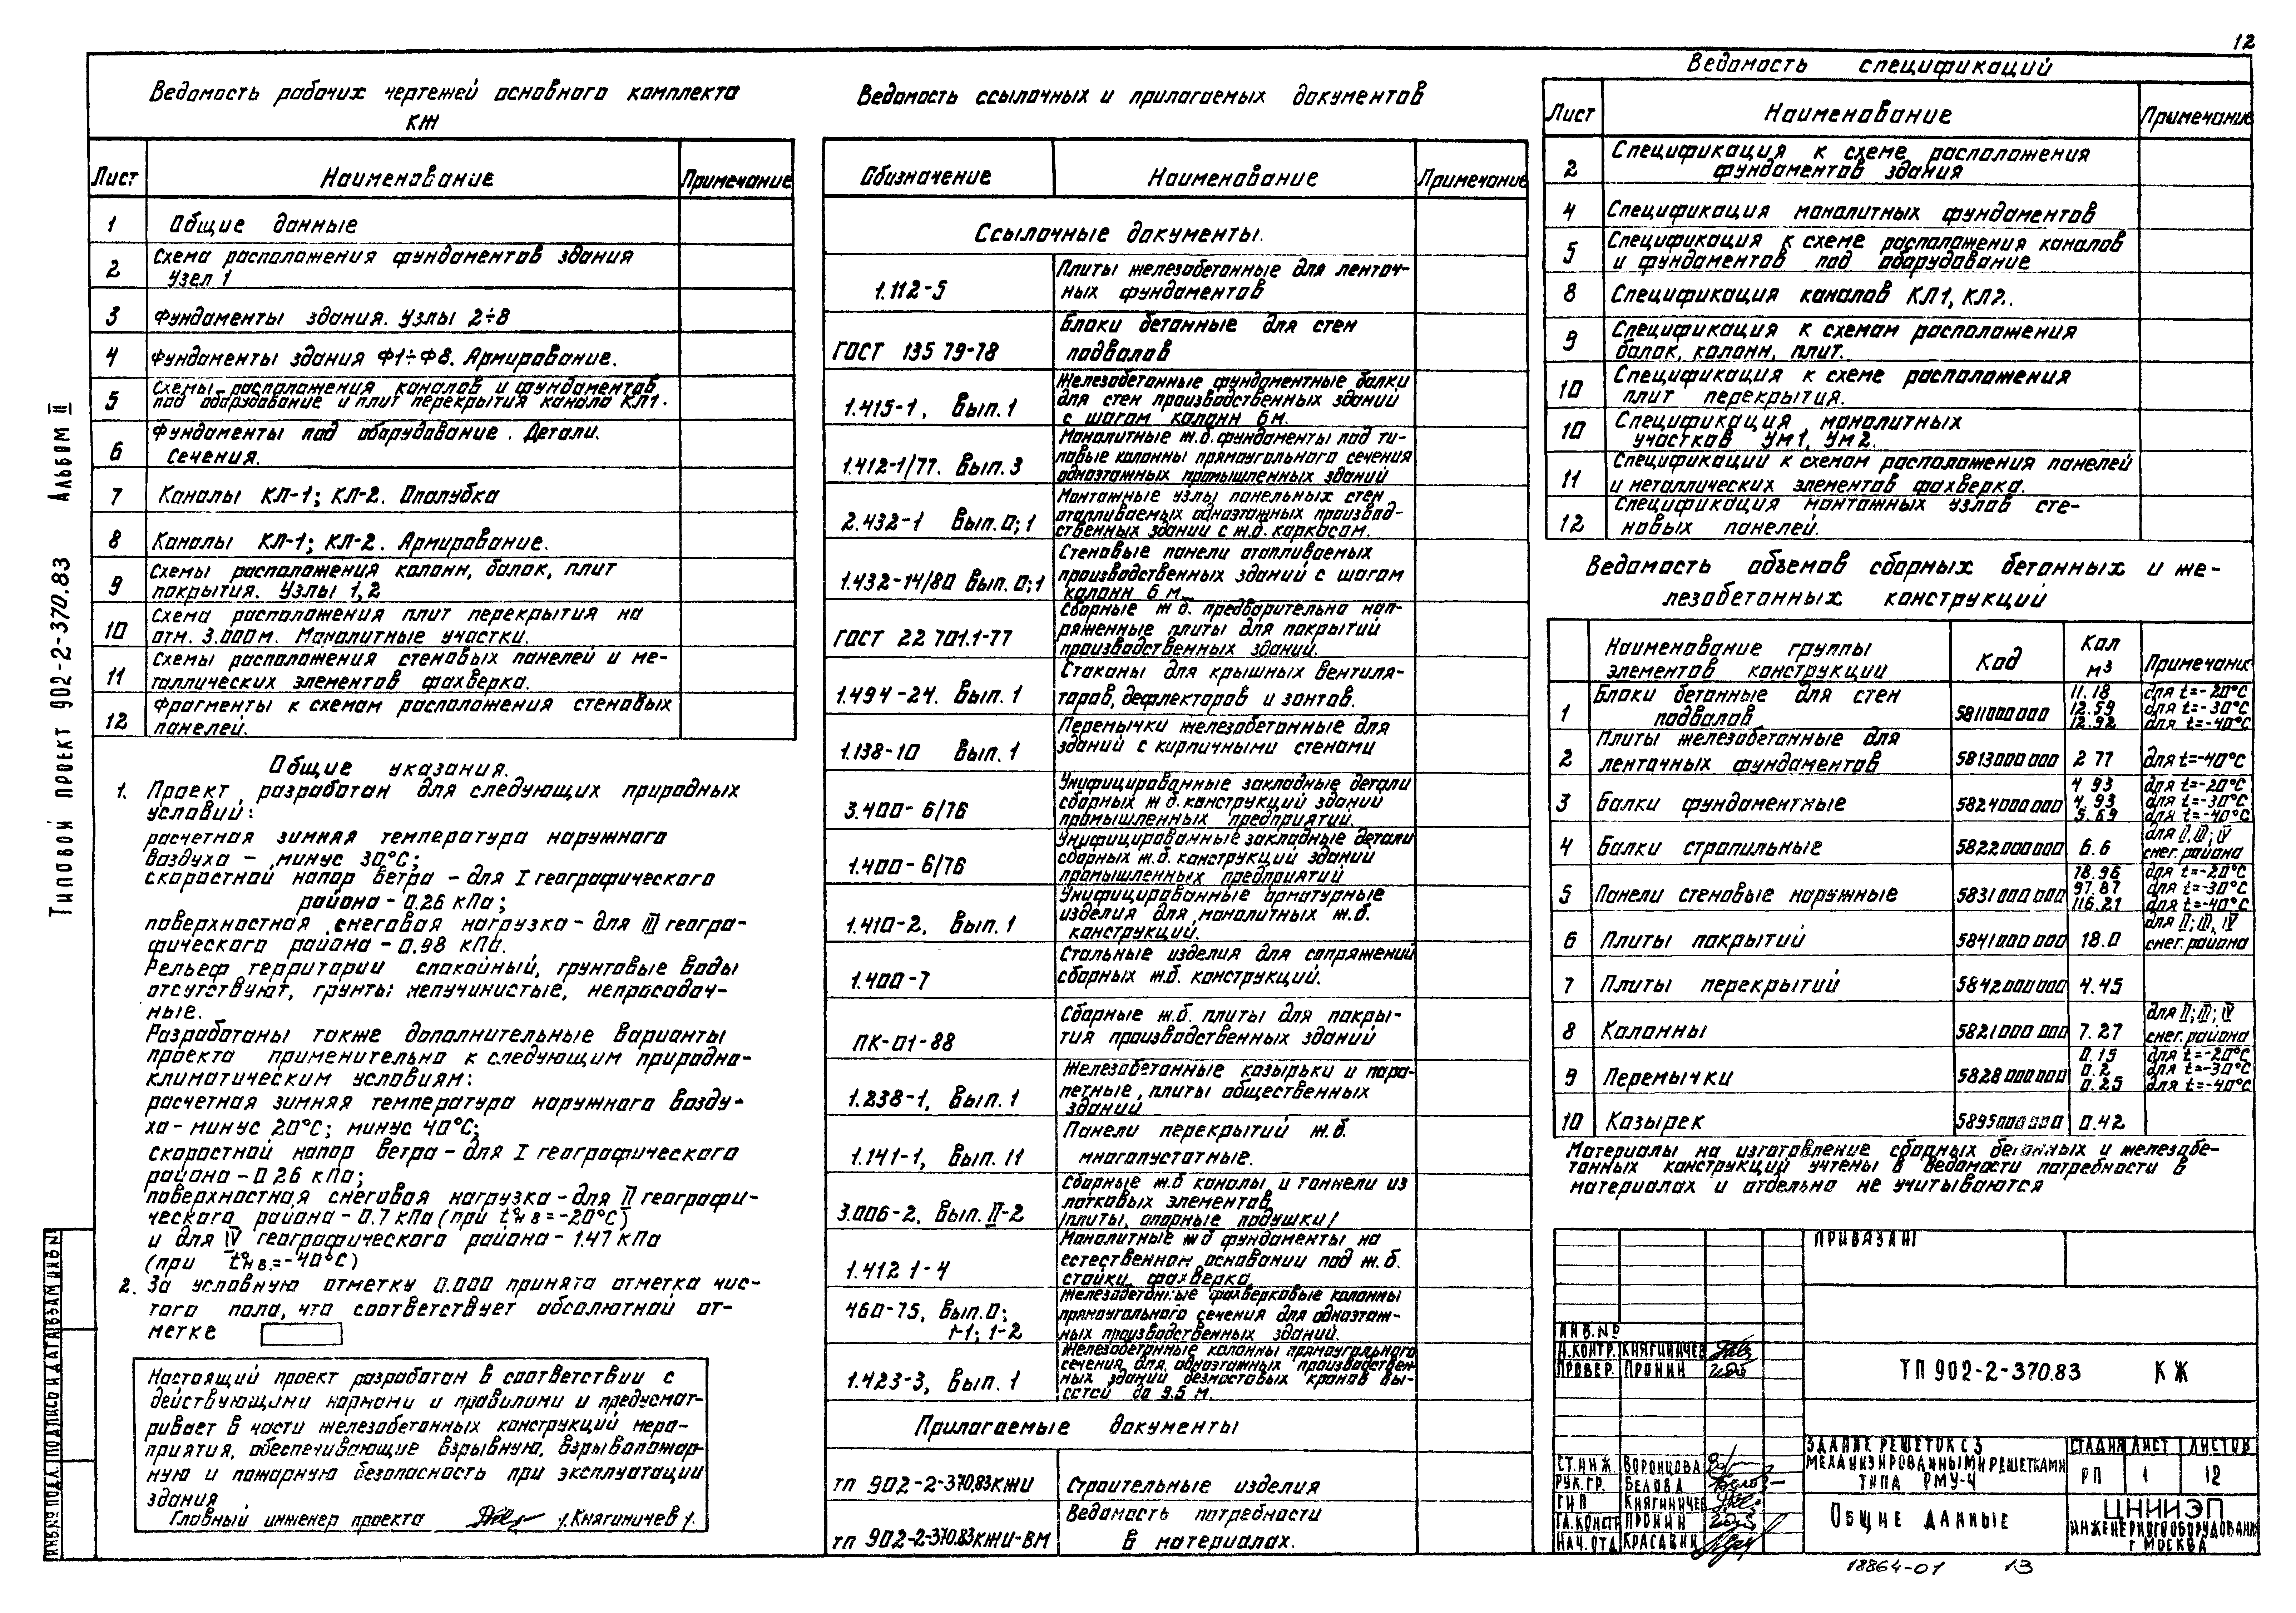 12
Типовой проект 902-2-370.83 Альбом II
Ведомость рабочих чертежей основного комплекта
КЖ
Лист Наименование Примечание
1 Общие данные
2 Схема расположения фундаментов здания
Узел 1
3 Фундаменты здания. Узлы 2÷8
4 Фундаменты здания Ф1÷Ф8. Армирование.
5 Схемы расположения каналов и фундаментов
под оборудование и плит перекрытия канала КЛ1.
6 Фундаменты под оборудование. Детали.
Сечения.
7 Каналы КЛ-1; КЛ-2. Опалубка
8 Каналы КЛ-1; КЛ-2. Армирование.
9 Схемы расположения колонн, балок, плит
покрытия. Узлы 1,2
10 Схема расположения плит перекрытия на
отм. 3.000м. Монолитные участки.
11 Схемы расположения стеновых панелей и ме-
таллических элементов фахверка.
12 Фрагменты к схемам расположения стеновых
панелей.
Общие указания.
1. Проект разработан для следующих природных
условий:
расчетная зимняя температура наружного
воздуха - минус 30°С;
скоростной напор ветра - для I географического
района - 0.26 кПа;
поверхностная снеговая нагрузка - для III геогра-
фического района - 0.98 кПа.
Рельеф территории спокойный, грунтовые воды
отсутствуют, грунты непучинистые, непросадоч-
ные.
Разработаны также дополнительные варианты
проекта применительно к следующим природно-
климатическим условиям:
расчетная зимняя температура наружного возду-
ха - минус 20°С; минус 40°С;
скоростной напор ветра - для I географического
района - 0.26 кПа;
поверхностная снеговая нагрузка - для II географи-
ческого района - 0.7 кПа (при tн.в=-20°С)
и для IV географического района - 1.47 кПа
(при tн.в.=-40°С)
2. За условную отметку 0.000 принята отметка чис-
того пола, что соответствует абсолютной от-
метке
Настоящий проект разработан в соответствии с
действующими нормами и правилами и предусмат-
ривает в части железобетонных конструкций меро-
приятия, обеспечивающие взрывную, взрывопожар-
ную и пожарную безопасность при эксплуатации
здания
Главный инженер проекта /Княгиничев/.
Ведомость ссылочных и прилагаемых документов
Обозначение Наименование Примечание
Ссылочные документы.
1.112-5 Плиты железобетонные для ленточ-
ных фундаментов
ГОСТ 13579-78 Блоки бетонные для стен
подвалов
1.415-1, Вып. 1 Железобетонные фундаментные балки
для стен производственных зданий
с шагом колонн 6м.
1.412-1/77. Вып. 3 Монолитные ж.б. фундаменты под ти-
повые колонны прямоугольного сечения
одноэтажных промышленных зданий
2.432-1 Вып. 0; 1 Монтажные узлы панельных стен
отапливаемых одноэтажных производ-
ственных зданий с ж.б. каркасом.
1.432-14/80 Вып. 0; 1 Стеновые панели отапливаемых
производственных зданий с шагом
колонн 6 м.
ГОСТ 22 701.1-77 Сборные ж б. предварительно нап-
ряженные плиты для покрытий
производственных зданий.
1.494-24. Вып. 1 Стаканы для крышных вентиля-
торов, дефлекторов и зонтов.
1.138-10 Вып. 1 Перемычки железобетонные для
зданий с кирпичными стенами
3.400-6/76 Унифицированные закладные детали
сборных ж б. конструкций зданий
промышленных предприятий.
1.400-6/76 Унифицированные закладные детали
сборных ж.б. конструкций зданий
промышленных предприятий
1.410-2, Вып. 1 Унифицированные арматурные
изделия для монолитных ж.б.
конструкций.
1.400-7 Стальные изделия для сопряжений
сборных ж.б. конструкций.
ПК-01-88 Сборные ж.б. плиты для покры-
тия производственных зданий
1.238-1, Вып. 1 Железобетонные козырьки и пара-
петные плиты общественных
зданий
1.141-1, Вып. 11 Панели перекрытий ж.б.
многопустотные.
3.006-2, Вып. II-2 Сборные ж.б каналы и тоннели из
лотковых элементов
/плиты, опорные подушки/
1.412 1-4 Монолитные ж б фундаменты на
естественном основании под ж.б.
стойки фахверка
460-75, Вып. 0;
1-1; 1-2 Железобетонные фахверковые колонны
прямоугольного сечения для одноэтаж-
ных производственных зданий.
1.423-3, Вып. 1 Железобетонные колонны прямоугольного
сечения для одноэтажных производствен-
ных зданий безмостовых кранов вы-
сотой до 9.5 м.
Прилагаемые документы
тп 902-2-370.83 КЖИ Строительные изделия
тп 902-2-370.83 КЖИ-ВМ Ведомость потребности
в материалах.
Ведомость спецификаций
Лист Наименование Примечание
2 Спецификация к схеме расположения
фундаментов здания
4 Спецификация монолитных фундаментов
5 Спецификация к схеме расположения каналов
и фундаментов под оборудование
8 Спецификация каналов КЛ1, КЛ2.
9 Спецификация к схемам расположения
балок, колонн, плит.
10 Спецификация к схеме расположения
плит перекрытия.
10 Спецификация монолитных
участков УМ1, УМ2.
11 Спецификации к схемам расположения панелей
и металлических элементов фахверка.
12 Спецификация монтажных узлов сте-
новых панелей.
Ведомость объемов сборных бетонных и же-
лезобетонных конструкций
Наименование группы
элементов конструкции Код Кол
м3 Примечание
1 Блоки бетонные для стен
подвалов 5811000000 11.18 для t=-20°С
12.59 для t=-30°С
12.92 для t=-40°С
2 Плиты железобетонные для
ленточных фундаментов 5813000000 2 77 для t=-40°С
3 Балки фундаментные 5824000000 4 93 для t=-20°С
4.93 для t=-30°С
5.69 для t=-40°С
4 Балки стропильные 5822000000 6.6 для II, III, IV
снег. района
5 Панели стеновые наружные 5831000000 78.96 для t=-20°С
97.87 для t=-30°С
116.21 для t=-40°С
6 Плиты покрытий 5841000000 18.0 для II; III, IV
снег. района
7 Плиты перекрытий 5842000000 4.45
8 Колонны 5821000000 7.27 для II; III; IV
снег. района
9 Перемычки 5828000000 0.15 для t=-20°С
0.2 для t=-30°С
0.25 для t=-40°С
10 Козырек 5895000000 0.42
Материалы на изготовление сборных бетонных и железобе-
тонных конструкций учтены в ведомости потребности в
материалах и отдельно не учитываются
Привязан
Инв. №
Н.контр. Княгиничев
Провер. Пронин
Ст.инж. Воронцова
Рук.гр. Белова
ГИП Княгиничев
Гл.констр Пронин
Нач.отд Красавин
ТП 902-2-370.83 КЖ
Здание решеток с 3
механизированными решетками
типа РМУ-4
Стадия Лист Листов
РП 1 12
Общие данные
ЦНИИЭП
инженерного оборудования
г Москва
Инв.№ подл. Подпись и дата Взам инв №
18864-01 13